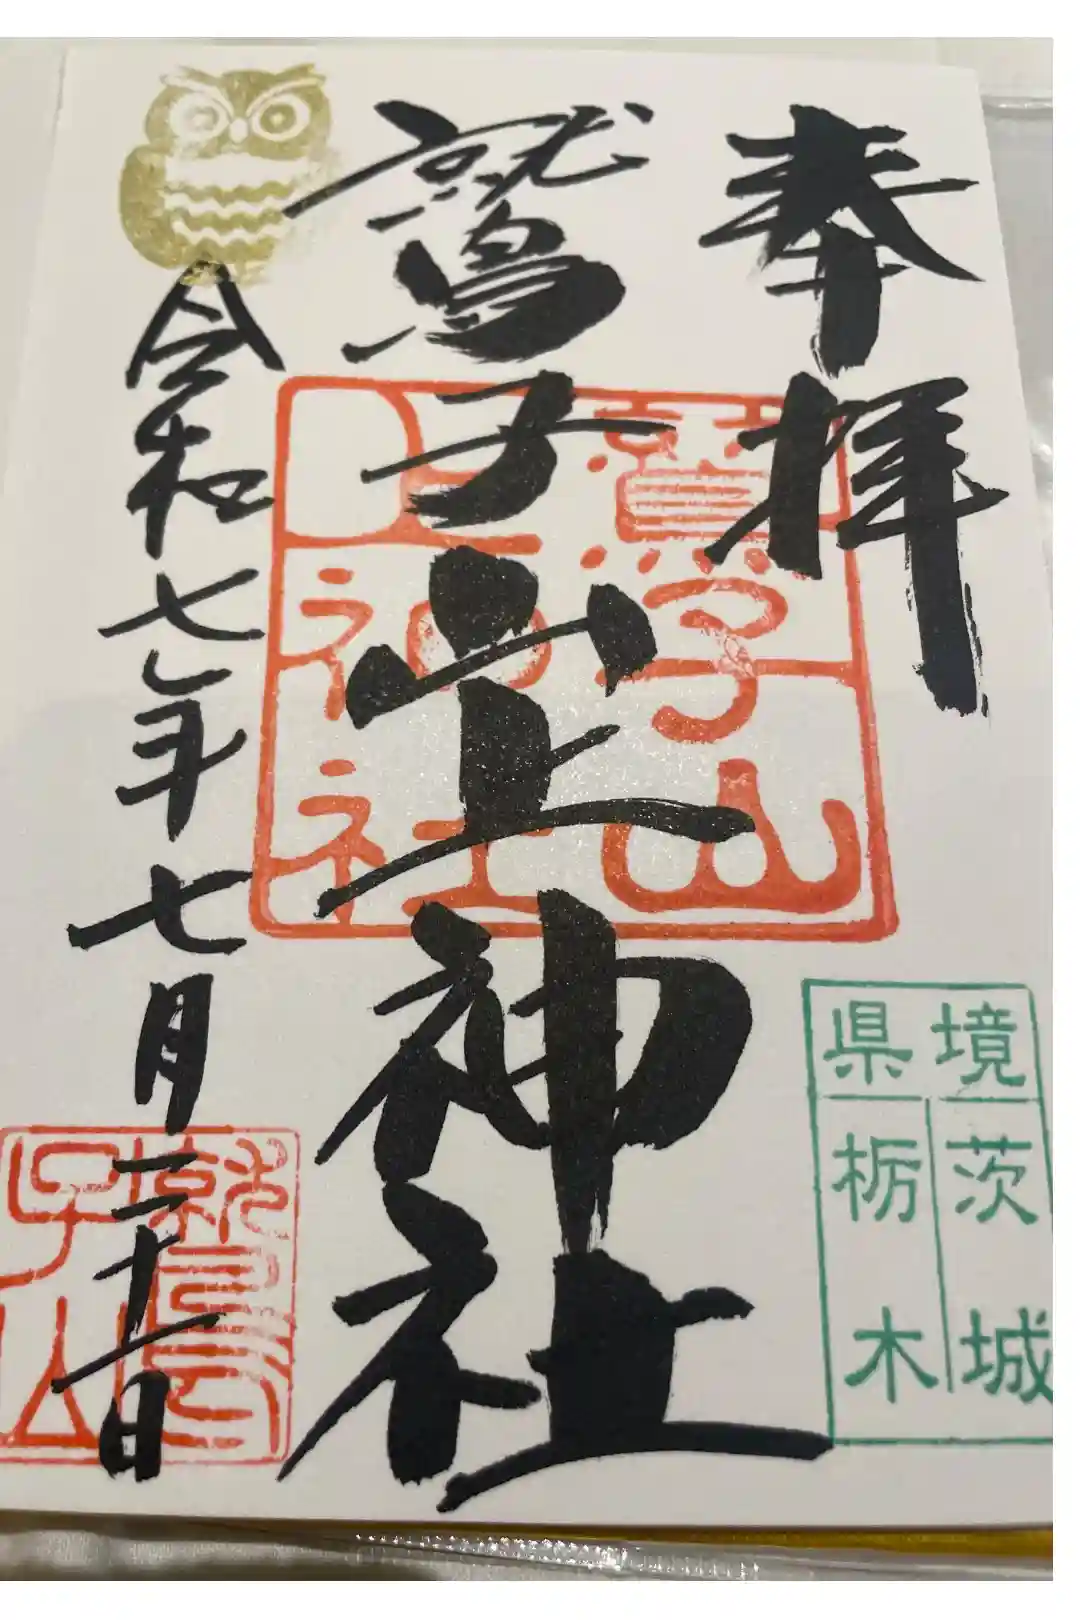 奉拝
鷲子山上神社
令和七年七月二十一日
鷲子山
上神社
県境
茨城
栃木
鷲
子山